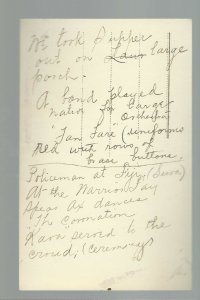 We took supper
out on large
porch.
A band played
native for dance
Orchestra
"Fan Fare" (uniforms
red with rows of
brass buttons,
Policeman at Fiji (Suva)
At the
Spear ax dances
"The Coronation
"Kava" served to the
crowd, (ceremony)